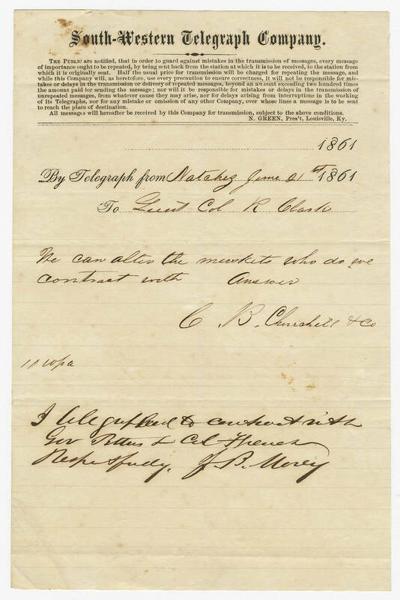 South-Western Telegraph Company.
THE PUBLIC are notified, that in order to guard against mistakes in the transmission of messages, every message
of importance ought to be repeated, by being sent back from the station at which it is to be received, to the station from
which it is originally sent. Half the usual price for transmission will be charged for repeating the message, and
while this Company will, as heretofore, use every precaution to ensure correctness, it will not be responsible for mis-
takes or delays in the transmission or delivery of repeated messages, beyond an amount exceeding two hundred times
the amount paid for sending the message; nor will it be responsible for mistakes or delays in the transmission of
unrepeated messages, from whatever cause they may arise, nor for delays arising from interruptions in the working
of its Telegraphs, nor for any mistake or omission of any other Company, over whose lines a message is to be sent
to reach the place of destination.
All messages will hereafter be received by this Company for transmission, subject to the above conditions.
N. GREEN, Pres't, Louisville, Ky.
1861
By Telegraph from Natchez June 21st 1861
To Lieut Col R Clark
We can alter the muskets who do we
contract with Answer
C B. Churchill & Co
I telegraphed to contract with
Gov Pettus & Col
Respectfully, J. B. Morey